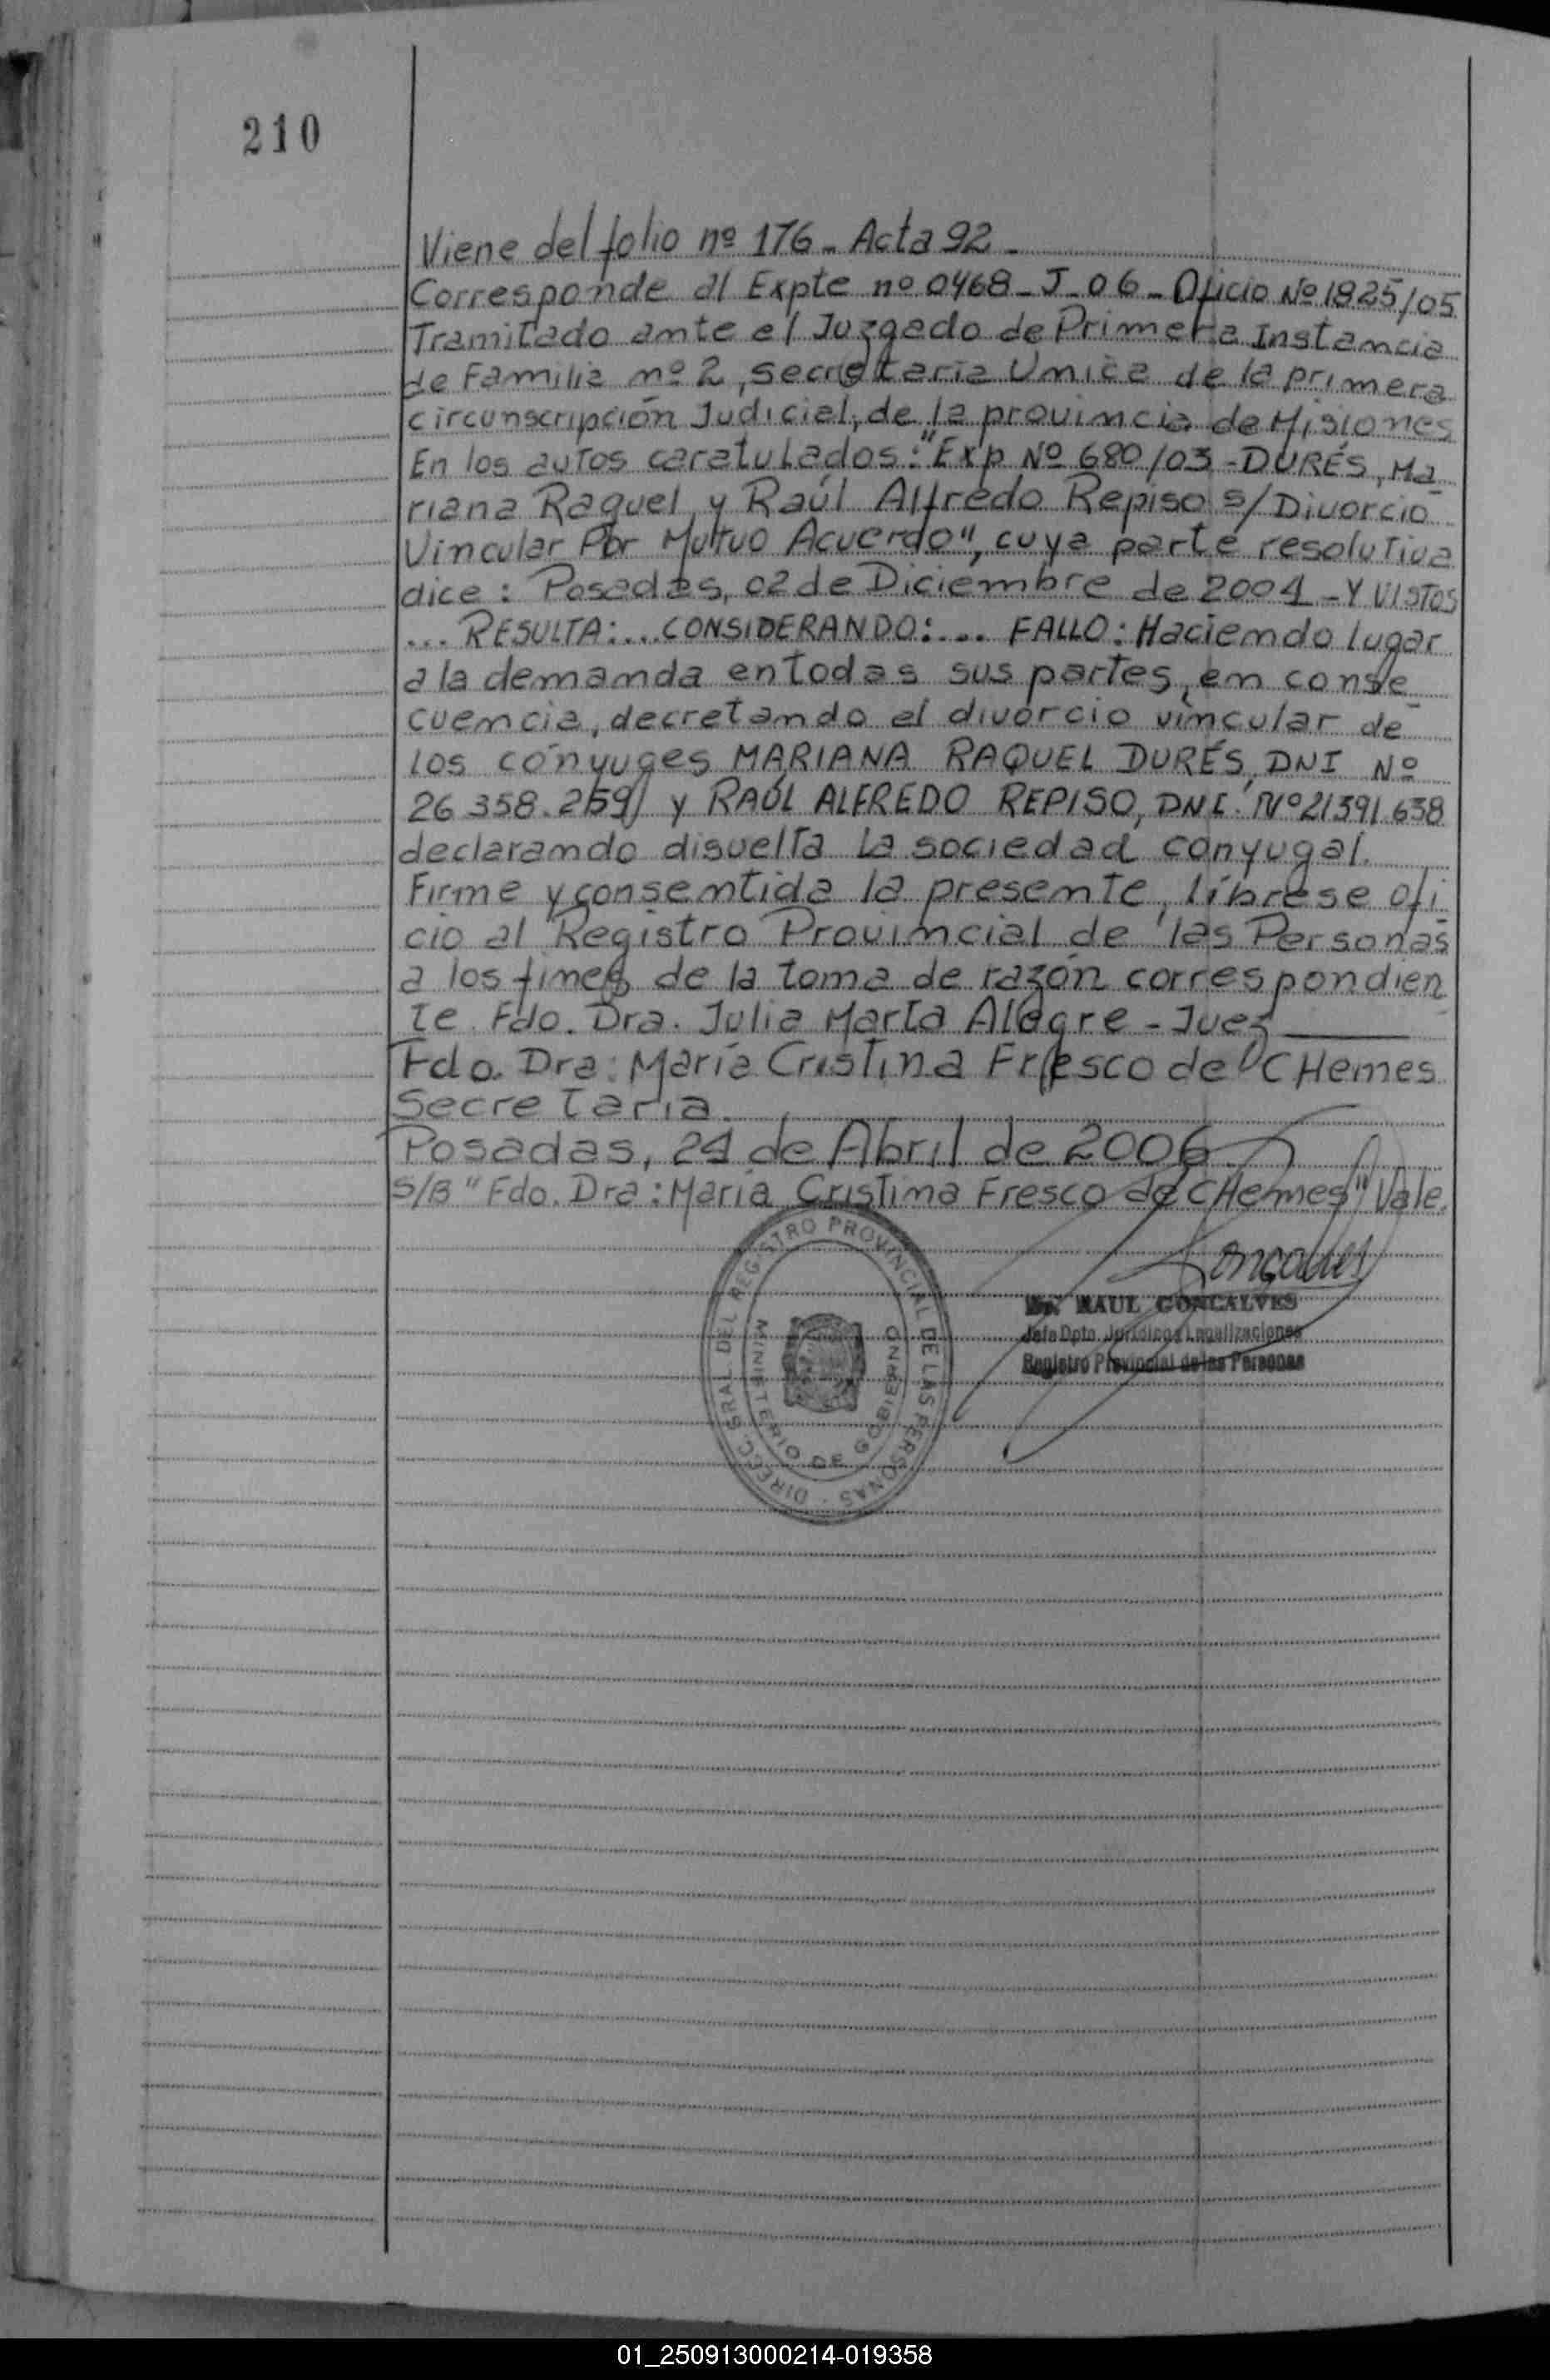 210
Viene del folio nº 176 - Acta 92 -
Corresponde al Expte nº 0468 - J - 06 - Oficio Nº 1825/05
Tramitado ante el Juzgado de Primera Instancia
de Familia nº 2, Secretaría Única de la primera
circunscripción Judicial, de la provincia de Misiones
En los autos caratulados: "Exp Nº 680/03 - DURÉS, Ma_
riana Raquel y Raúl Alfredo Repiso s/ Divorcio
Vincular Por Mutuo Acuerdo", cuya parte resolutiva
dice: Posadas, 02 de Diciembre de 2004 - Y VISTOS
... RESULTA: ... CONSIDERANDO: ... FALLO: Haciendo lugar
a la demanda en todas sus partes, en conse_
cuencia, decretando el divorcio vincular de
los cónyuges MARIANA RAQUEL DURÉS, DNI Nº
26.358.259 y RAÚL ALFREDO REPISO, DNI. Nº 21.391.638
declarando disuelta la sociedad conyugal.
Firme y consentida la presente, líbrese ofi_
cio al Registro Provincial de las Personas
a los fines de la toma de razón correspondien_
te. Fdo. Dra. Julia Marta Alegre - Juez
Fdo. Dra: María Cristina Fresco de CHemes
Secretaria.
Posadas, 24 de Abril de 2006
S/B "Fdo. Dra: María Cristina Fresco de CHemes" Vale.
Goncalves
DIRECC. GRAL. DEL REGISTRO PROVINCIAL DE LAS PERSONAS
MINISTERIO DE GOBIERNO
Dr. RAUL GONCALVES
Jefe Dpto. Jurídico y Legalizaciones
Registro Provincial de las Personas
01_250913000214-019358